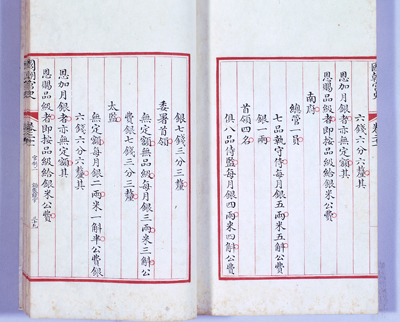 國朝宮史
卷二十一
六錢六分六釐其
恩加月銀者亦無定額其
恩賜品級者即按品級給銀米公費
南府
總管一員
七品執守侍每月銀五兩米五斛公費
銀一兩
首領四名
俱八品侍監每月銀四兩米四斛公費
銀七錢三分三釐
委署首領
無定額無品級每月銀三兩米三斛公
費銀七錢三分三釐
太監
無定額每月銀二兩米一斛半公費銀
六錢六分六釐其
恩加月銀者亦無定額其
恩賜品級者即按品級給銀米公費
國朝宮史
卷二十一